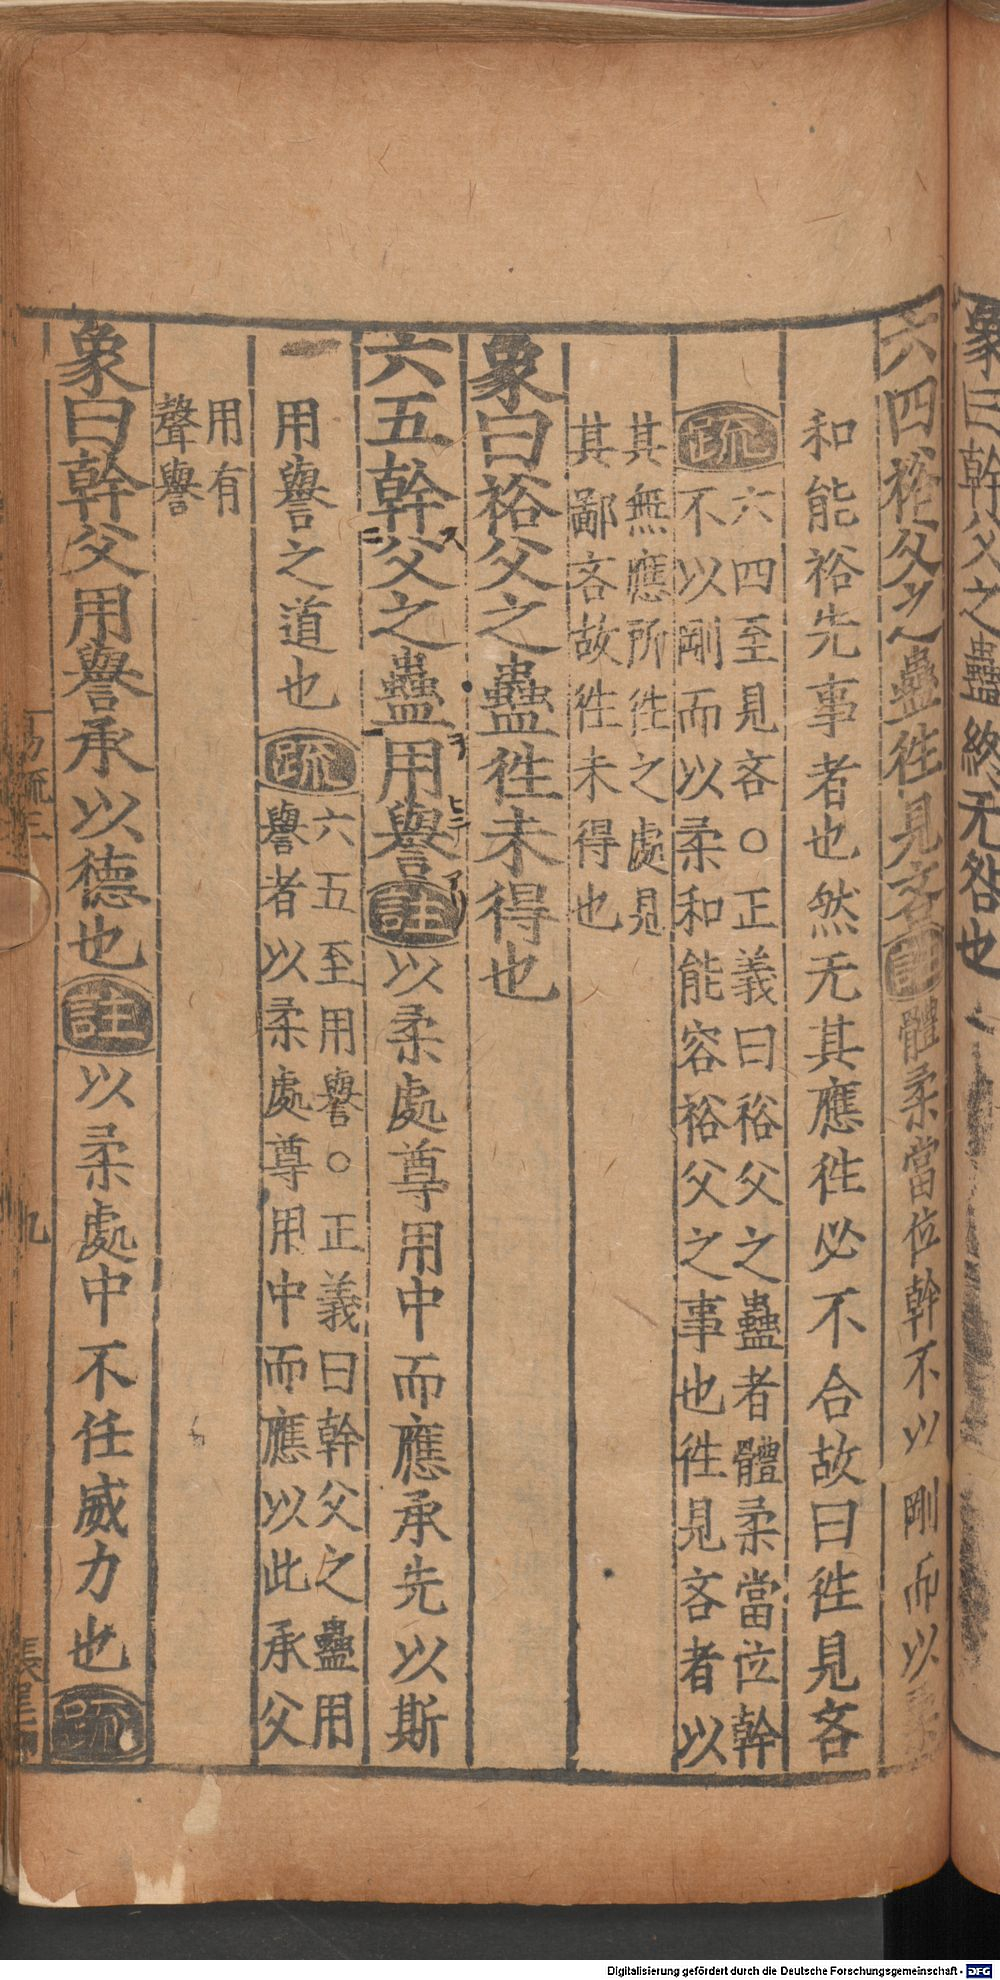 象曰幹父之蠱終无咎也
六四裕父之蠱徃見吝註體柔當位幹不以剛而以柔
和能裕先事者也然无其應徃必不合故曰徃見吝
疏六四至見吝○正義曰裕父之蠱者體柔當位幹
不以剛而以柔和能容裕父之事也徃見吝者以
其無應所徃之處見
其鄙吝故徃未得也
象曰裕父之蠱徃未得也
六五幹父之蠱用譽註以柔處尊用中而應承先以斯
用譽之道也疏六五至用譽○正義曰幹父之蠱用
譽者以柔處尊用中而應以此承父
用有
聲譽
象曰幹父用譽承以德也註以柔處中不任威力也疏
易疏三
九
Digitalisierung gefördert durch die Deutsche Forschungsgemeinschaft - DFG